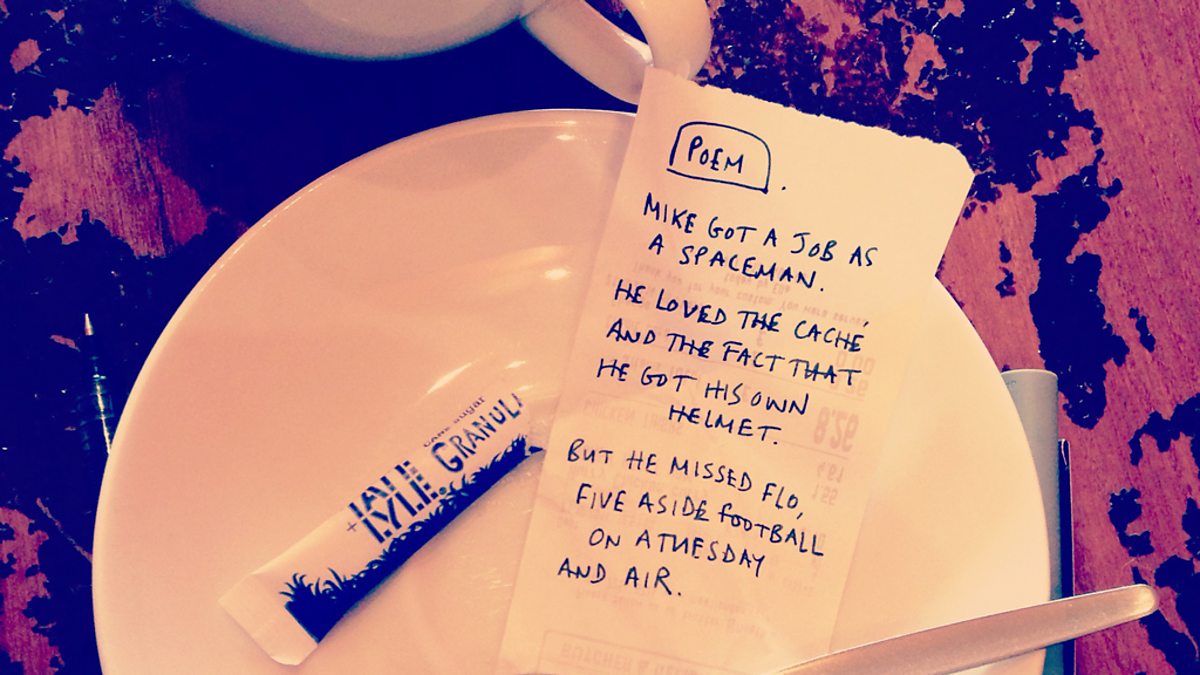 POEM.
MIKE GOT A JOB AS
A SPACEMAN.
HE LOVED THE CACHÉ
AND THE FACT THAT
HE GOT HIS OWN
HELMET.
BUT HE MISSED FLO,
FIVE ASIDE FOOTBALL
ON A TUESDAY
AND AIR.
CANE sugar
TATE
+LYLE. GRANUL
8.26